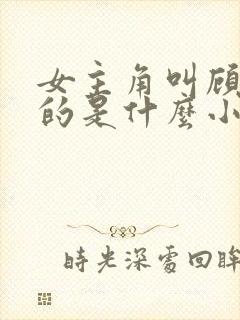 女主角叫顾
的是什麼小
時光深處回眸